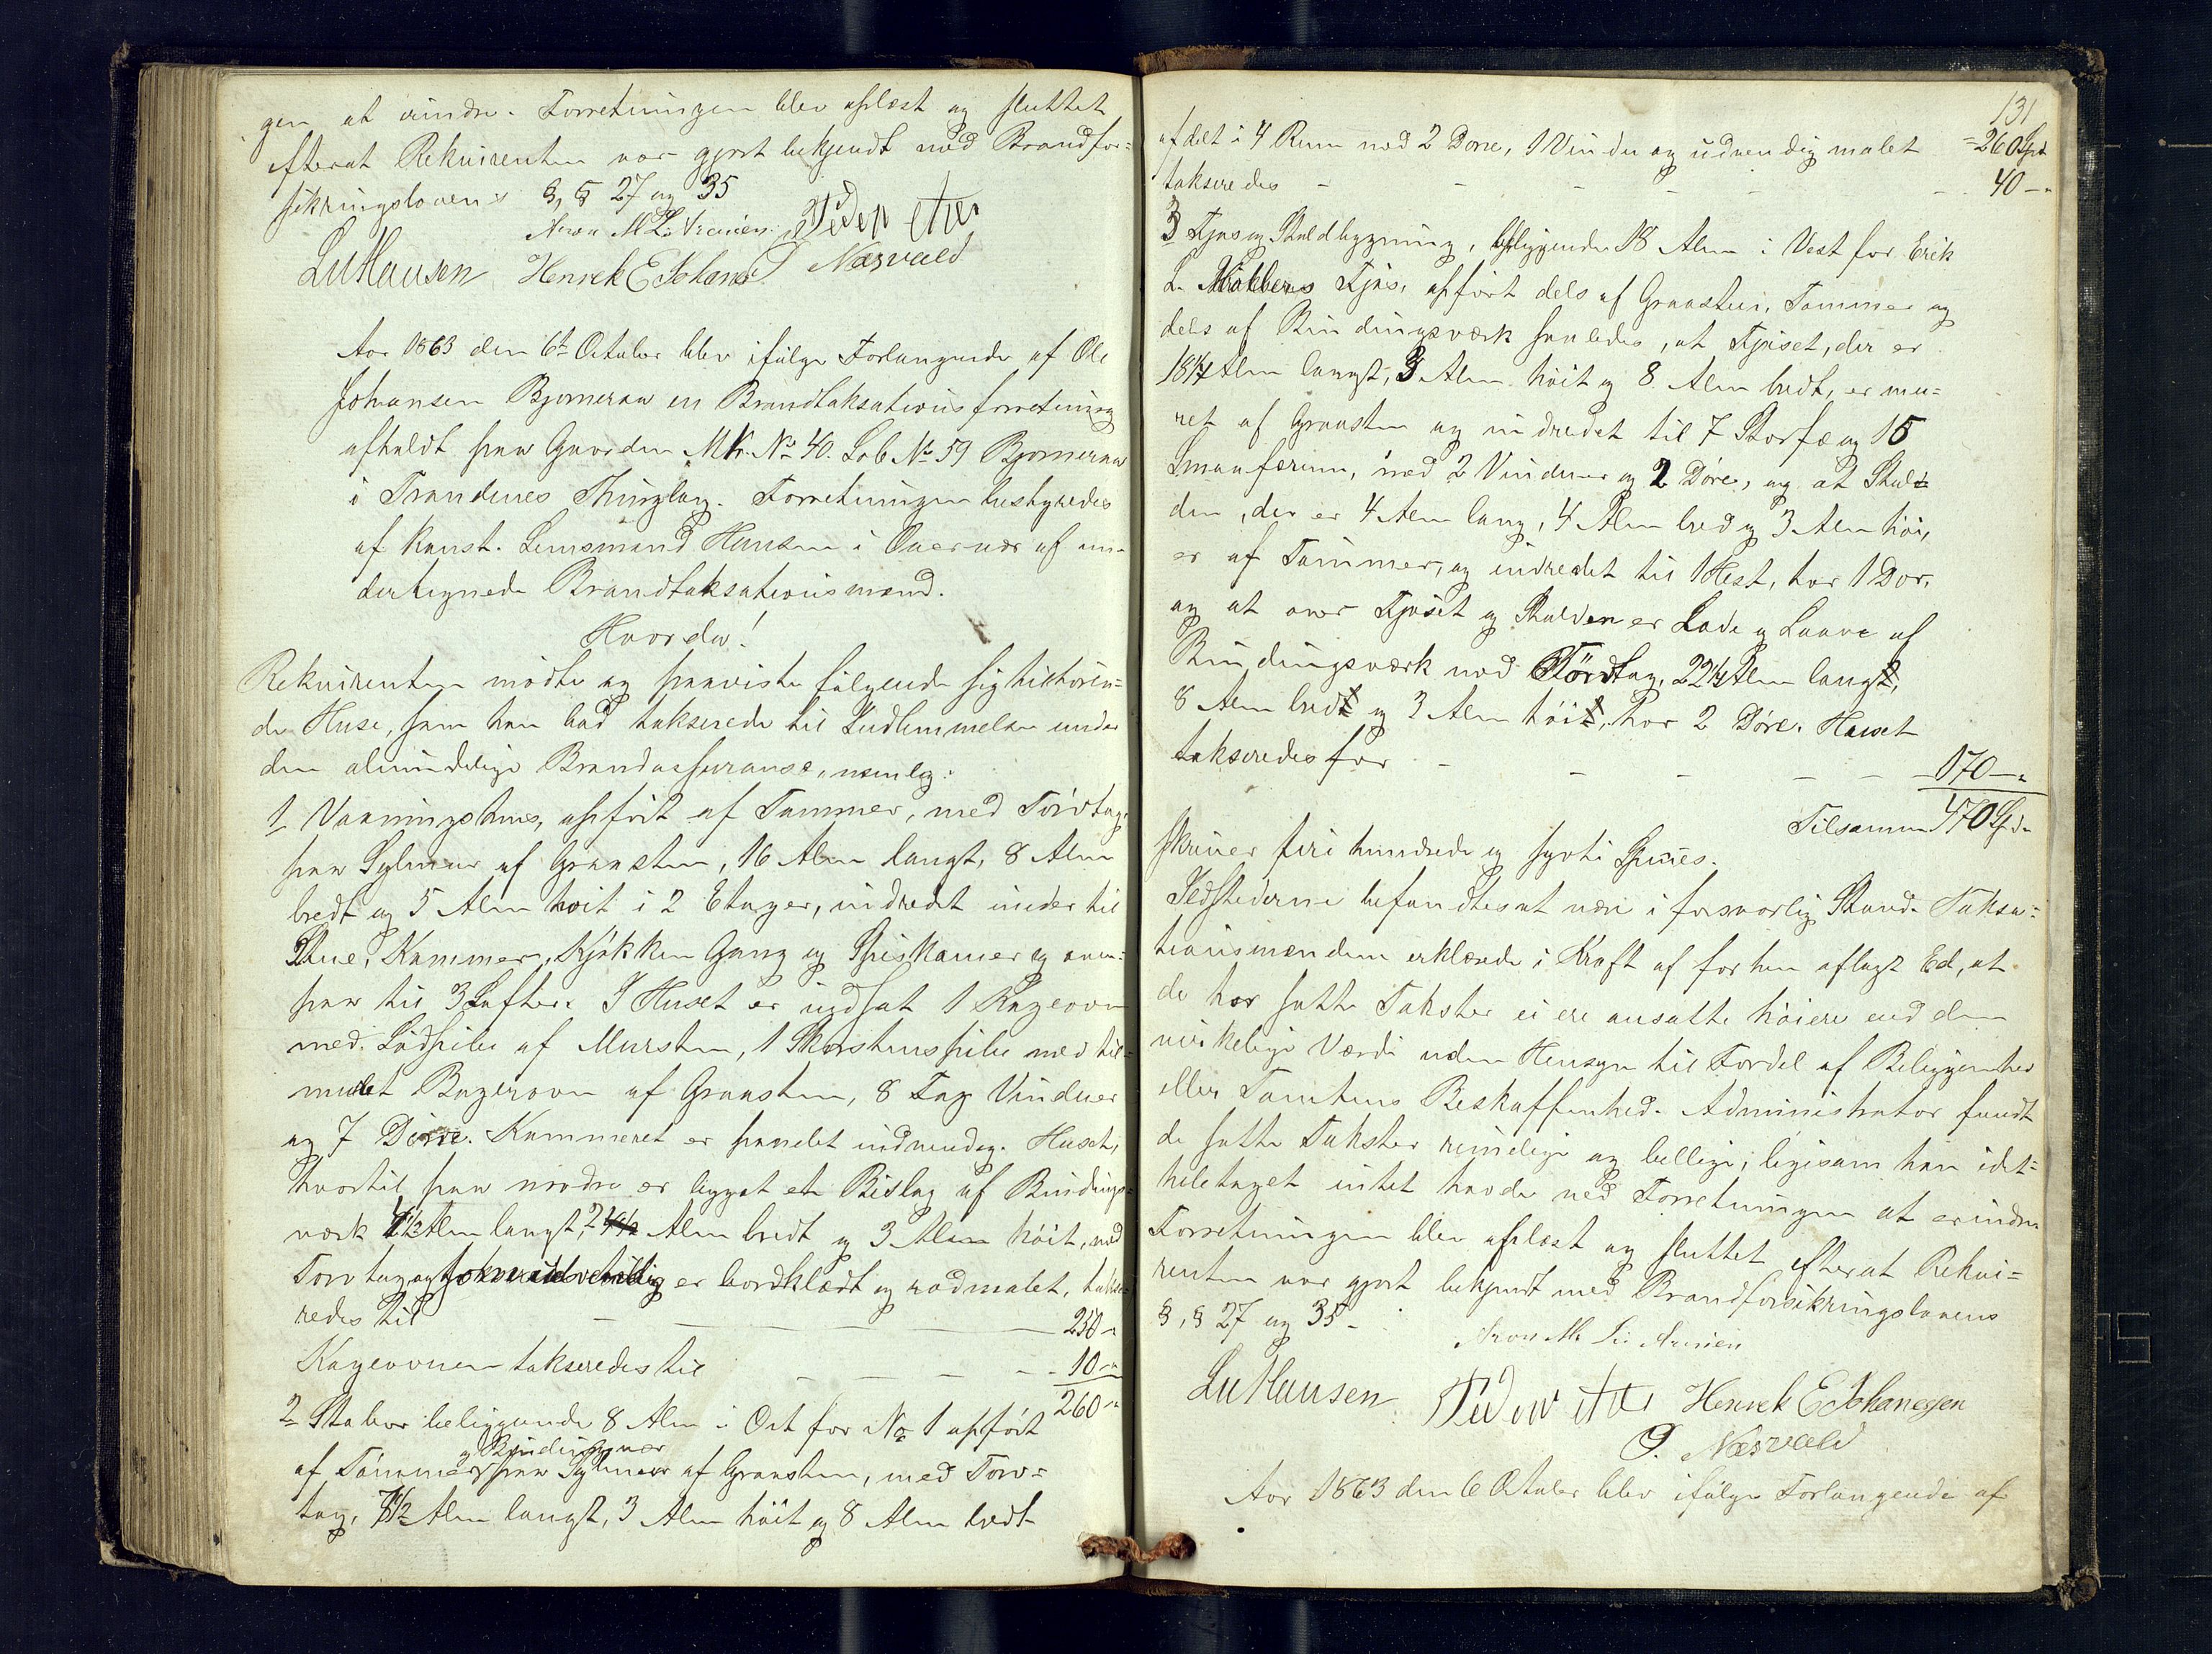 gen at erindre. Forretningen blev oplæst og sluttet
efterat Rekvirenten var gjort bekjendt med Brandfor=
sikringslovens §, § 27 og 35
Lu Hansen Henrik E Johans. P Næsvald
Aar 1863 den 6te October blev ifølge Forlangende af Ole
Johansen Bjørneraa en Brandtaksationsforretning
afholdt paa Gaarden M. N. No 40. Løb No 59 Bjørneraa
i Trondenes Thinglag. Forretningen bestyredes
af Konst. Lensmand Hansen i Overvær af un=
dertegnede Brandtaksationsmænd.
Hvorda!
Rekvirenten mødte og paaviste følgende sig tilhøren=
de Huse, som han bad takserede til Indlemmelse under
den almindelige Brandassurance, nemlig:
1 Vaaningshus, opført af Tømmer, med Torvtag,
paa Sylmuur af Graasten, 16 Alen langt, 8 Alen
bredt og 5 Alen høit i 2 Etager, indredet under til
Stue, Kammer, Kjøkken Gang og Spiskamer og oven=
paa til 3 Lofter. I Huset er indsat 1 Kageovn
med Lødpibe af Mursten, 1 Skorstenspibe med til=
muret Bagerovn af Graasten, 8 Fag Vinduer
og 7 Døre. Kammeret er panelet indvendig. Huset,
hvortil paa nordre er bygget et Bislag af Bindings=
værk 4½ Alen langt, 2 Alen bredt og 3 Alen høit, med
Torvtag og er bordklædt og rødmalet, takse=
redes til — — — 250 "
Kageovnen takseredes til — — — 10 "
260 "
2 Stabur beliggende 8 Alen i Ost for No 1 opført
og Bindingsvær
af Tømmer paa Sylmuur af Graasten, med Torv=
tag, 7½ Alen langt, 3 Alen høit og 8 Alen bredt
131
afdelt i 4 Rum med 2 Døre, 1 Vindu og udvendig malet = 260 Spd
takseredes — — — — — 40 — "
3 Fjøs og Staldbygning, beliggende 18 Alen i Vest for Erik
L. Fjøs, opført dels af Graasten, Tømmer og
dels af Bindingsværk saaledes, at Fjøset, der er
18¼ Alen langt, 3 Alen høit og 8 Alen bredt, er mu=
ret af Graasten og indredet til 7 Storfæ og 15
Smaafærum, med 2 Vinduer og 2 Døre, og at Stal=
den, der er 4 Alen lang, 4 Alen bred og 3 Alen høi,
er af Tømmer, og indredet til 1 Hest, har 1 Dør,
og at over Fjøset og Stalden er Lade og Laave af
Bindingsværk med Törvtag, 22¼ Alen langt,
8 Alen bredt og 3 Alen høit, har 2 Døre. Huset
takseredes for — — — — — 170 — "
Tilsammen 470 Spd
skriver fire hundrede og sytti Species.
Ildstederne befandtes at være i forsvarlig Stand. Taksa=
tionsmændene erklærede i Kraft af forhen aflagt Ed, at
de har satte Takster ei ere ansatte høiere end den
virkelige Værdi uden Hensyn til Fordel af Beliggenhed
eller Tomtens Beskaffenhed. Administrator fandt
de satte Takster rimelige og billige, ligesom han idet=
heletaget intet havde ved Forretningen at erindre
Forretningen blev oplæst og sluttet efterat Rekvi=
renten var gjort bekjendt med Brandforsikringslovens
§, § 27 og 35 –
Lu Hansen Henrik E Johanesen
P. Næsvald
Aar 1863 den 6 October blev ifølge Forlangende af